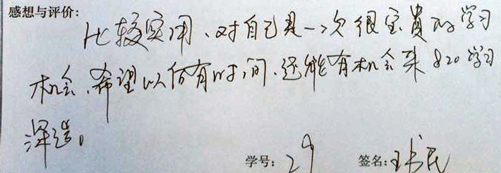 感想与评价:
比较实用、对自己是一次很宝贵的学习
机会、希望以后有时间、还能有机会来820学习
深造。
学号: 29 签名: 王书民